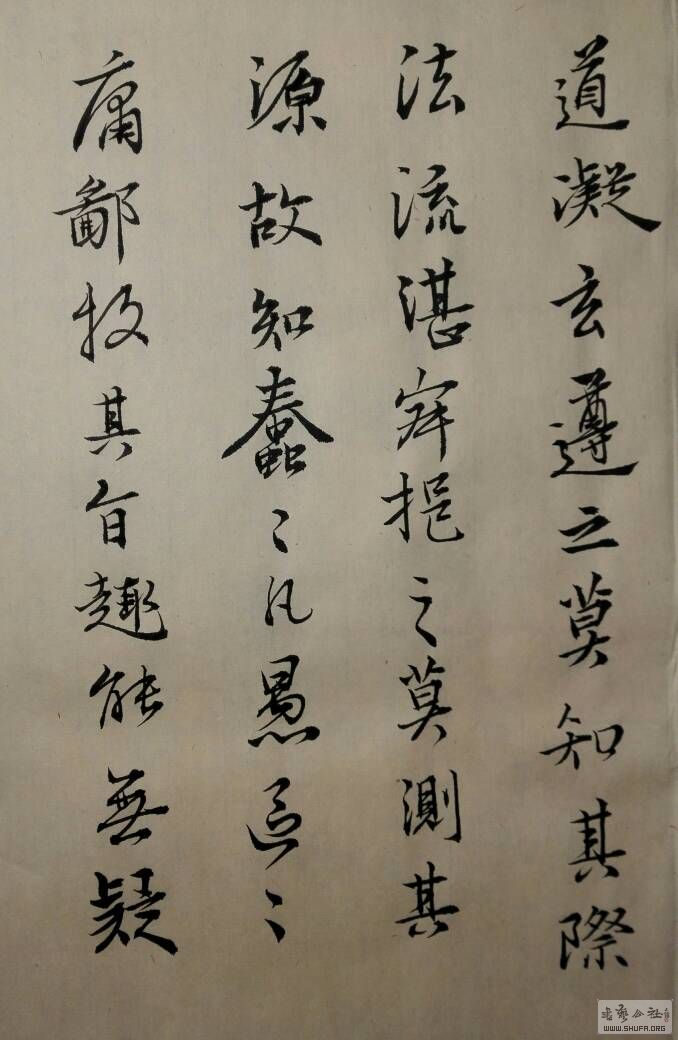 道凝玄遵之莫知其際
法流湛寂挹之莫測其
源故知蠢〻凡愚區〻
庸鄙投其旨趣能無疑
书艺公社
WWW.SHUFA.ORG